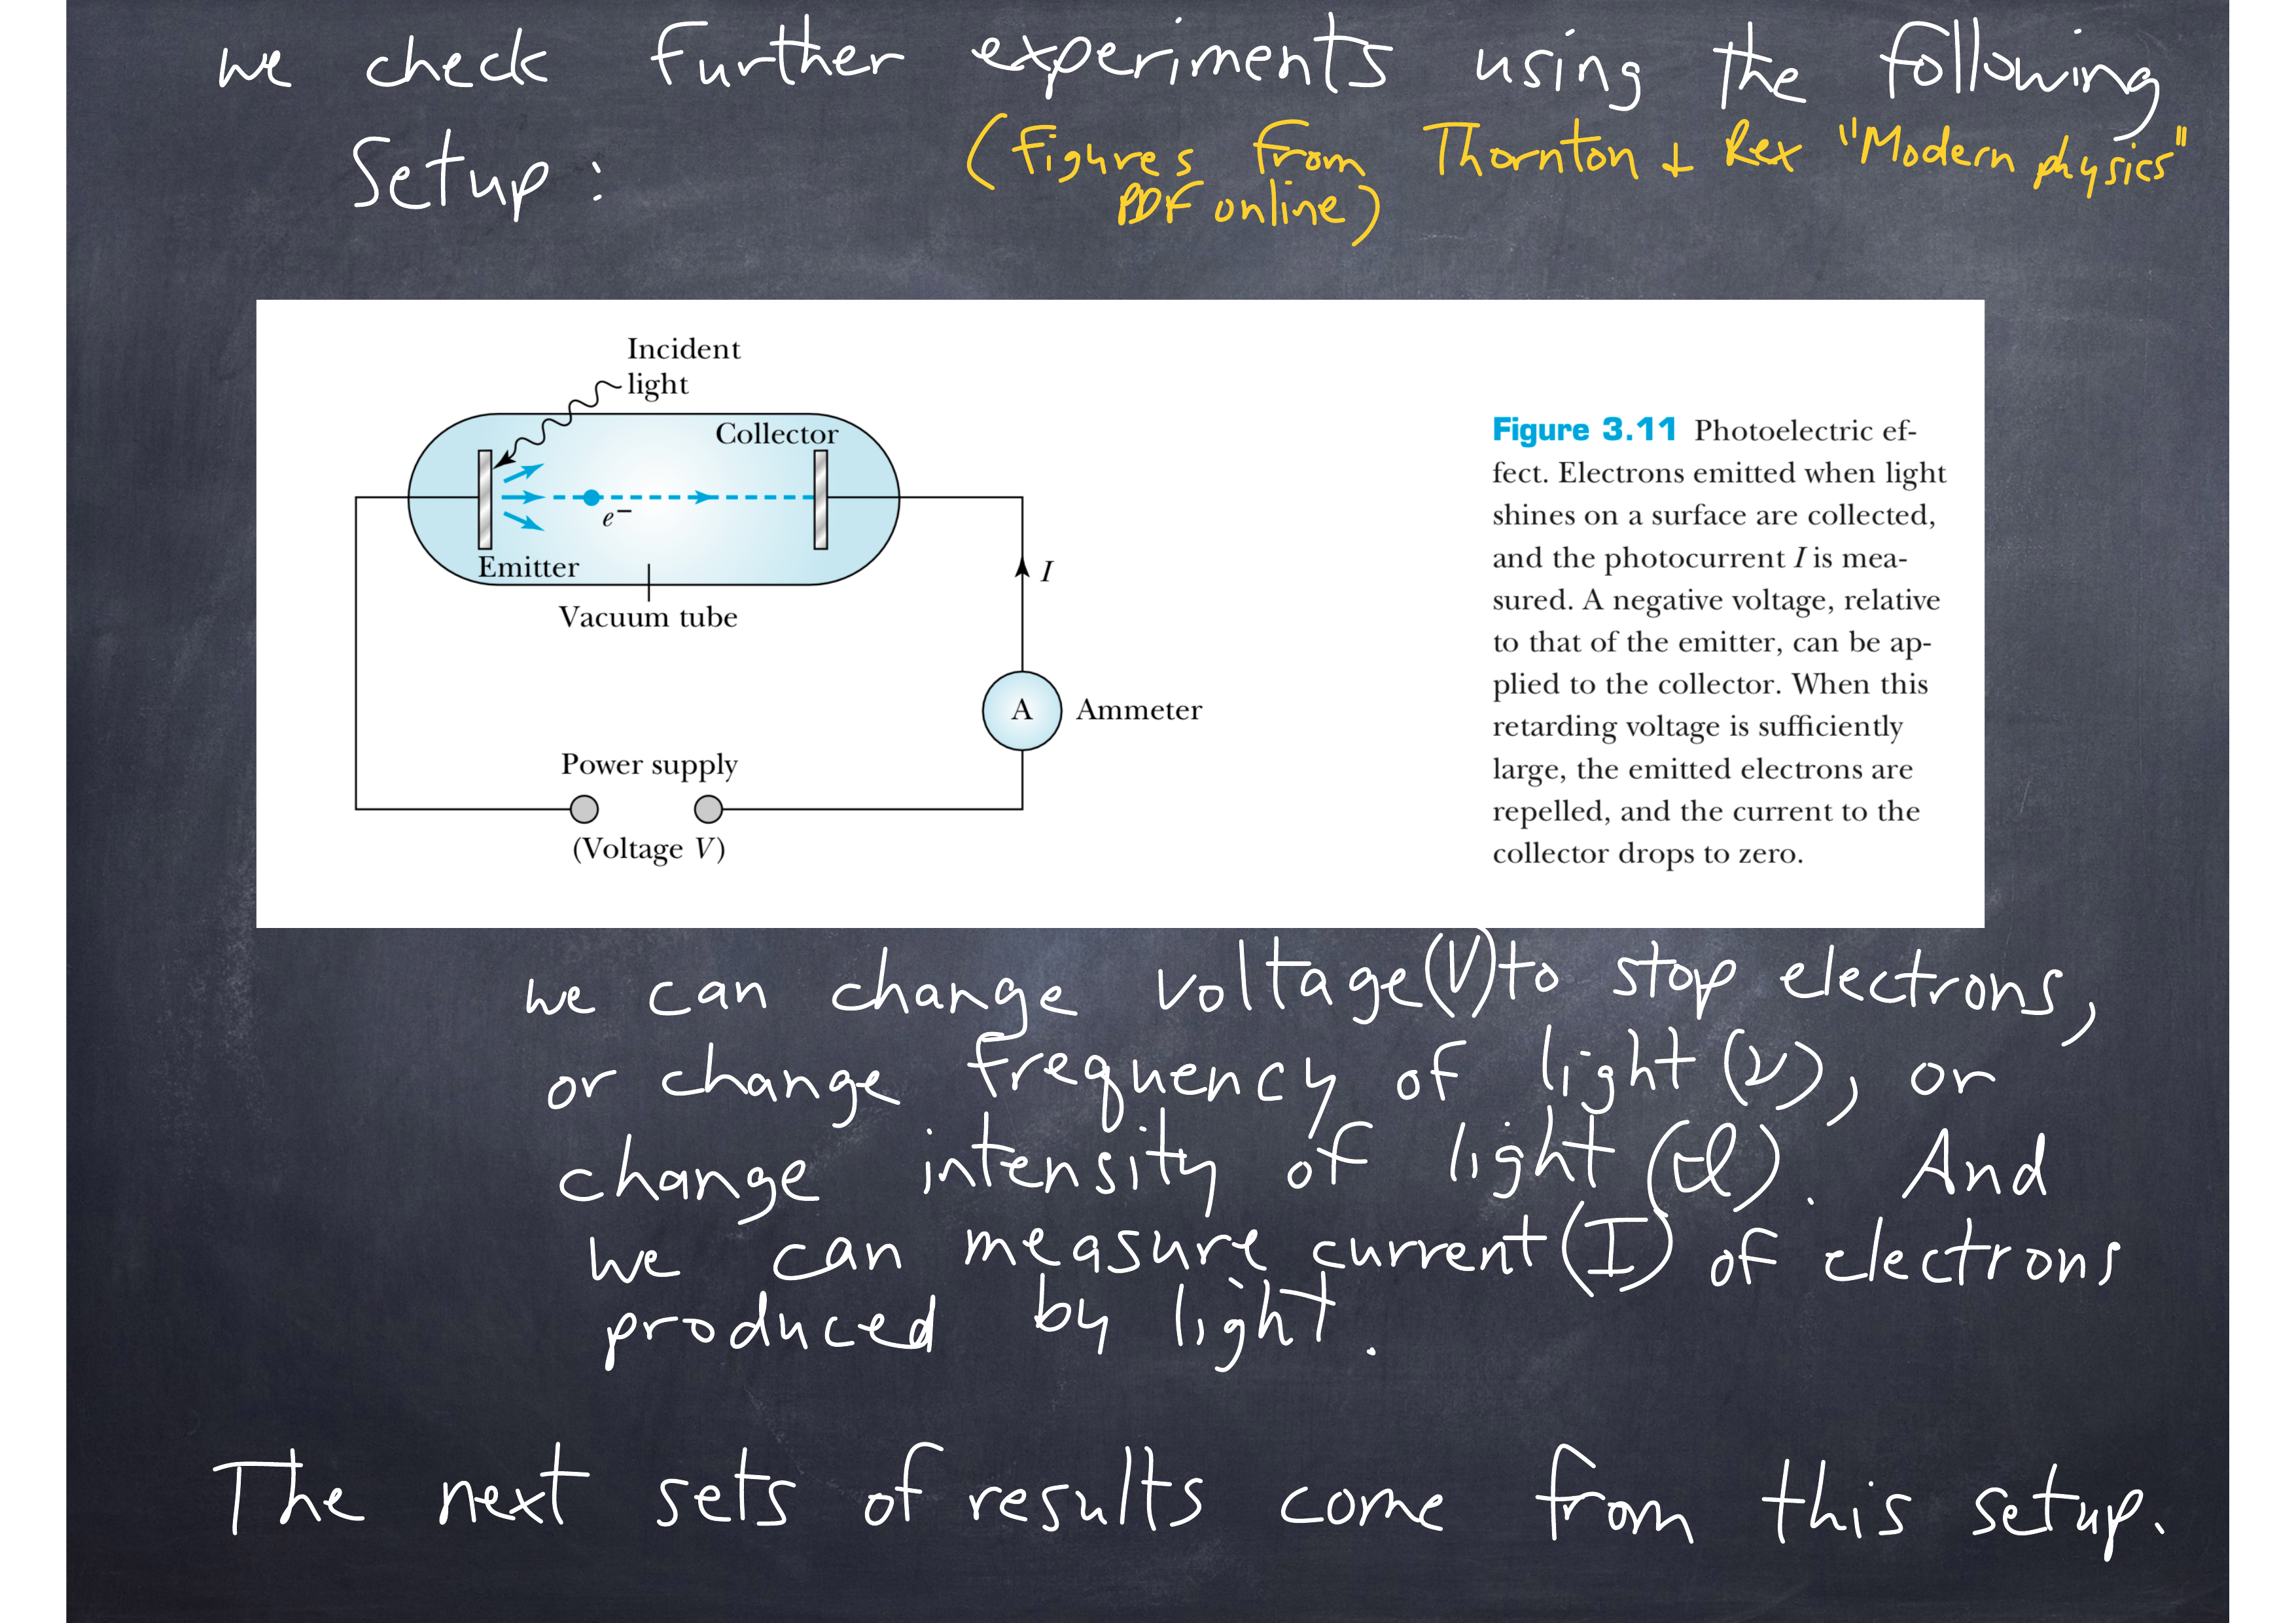 we check further experiments using the following
Setup:
(Figures from Thornton + Rex "Modern physics"
PDF online)
Incident
light
Collector
e⁻
Emitter
Vacuum tube
I
A Ammeter
Power supply
(Voltage V)
Figure 3.11 Photoelectric ef-
fect. Electrons emitted when light
shines on a surface are collected,
and the photocurrent I is mea-
sured. A negative voltage, relative
to that of the emitter, can be ap-
plied to the collector. When this
retarding voltage is sufficiently
large, the emitted electrons are
repelled, and the current to the
collector drops to zero.
we can change voltage (V) to stop electrons,
or change frequency of light (ν), or
change intensity of light (ℐ). And
we can measure current (I) of electrons
produced by light.
The next sets of results come from this setup.